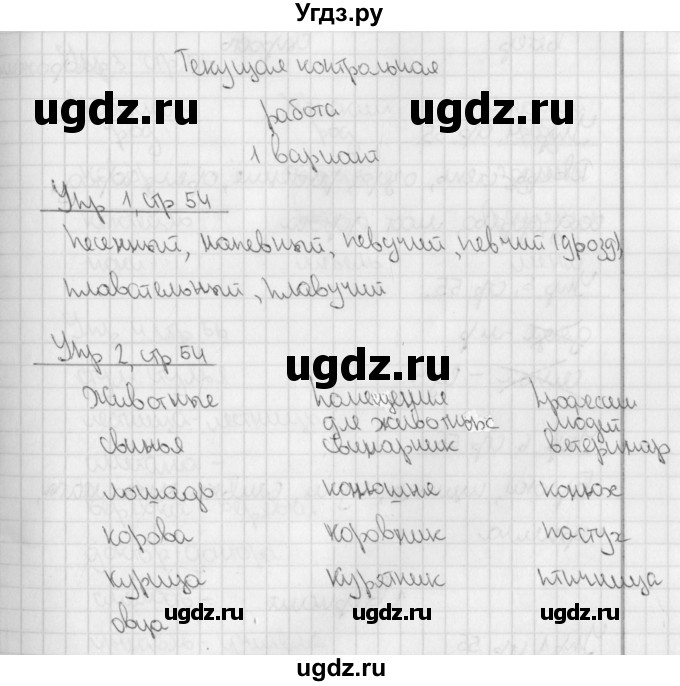 Угдз.ру
Текущая контрольная
ugdz.ru ugdz.ru
работа
1 вариант
Упр 1, стр 54
песенный, напевный, певучий, певчий (дрозд),
плавательный, плавучий
Упр 2, стр 54
ugdz.ru
животные помещение профессии
для животных людей
свинья свинарник ветеринар
лошадь конюшне конюх
корова коровник пастух
курица курятник птичница
ugdz.ru ugdz.ru
овца
ugdz.ru